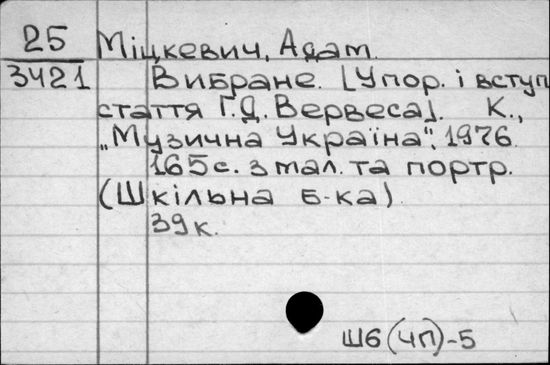 25
3421
Міцкевич, Адам.
Вибране. [Упор. і вступ
стаття Г.Д. Вервеса]. К.,
„Музична Україна", 1976.
165 с. з мал. та портр.
(Шкільна б-ка)
39 к.
Ш6(4П)-5